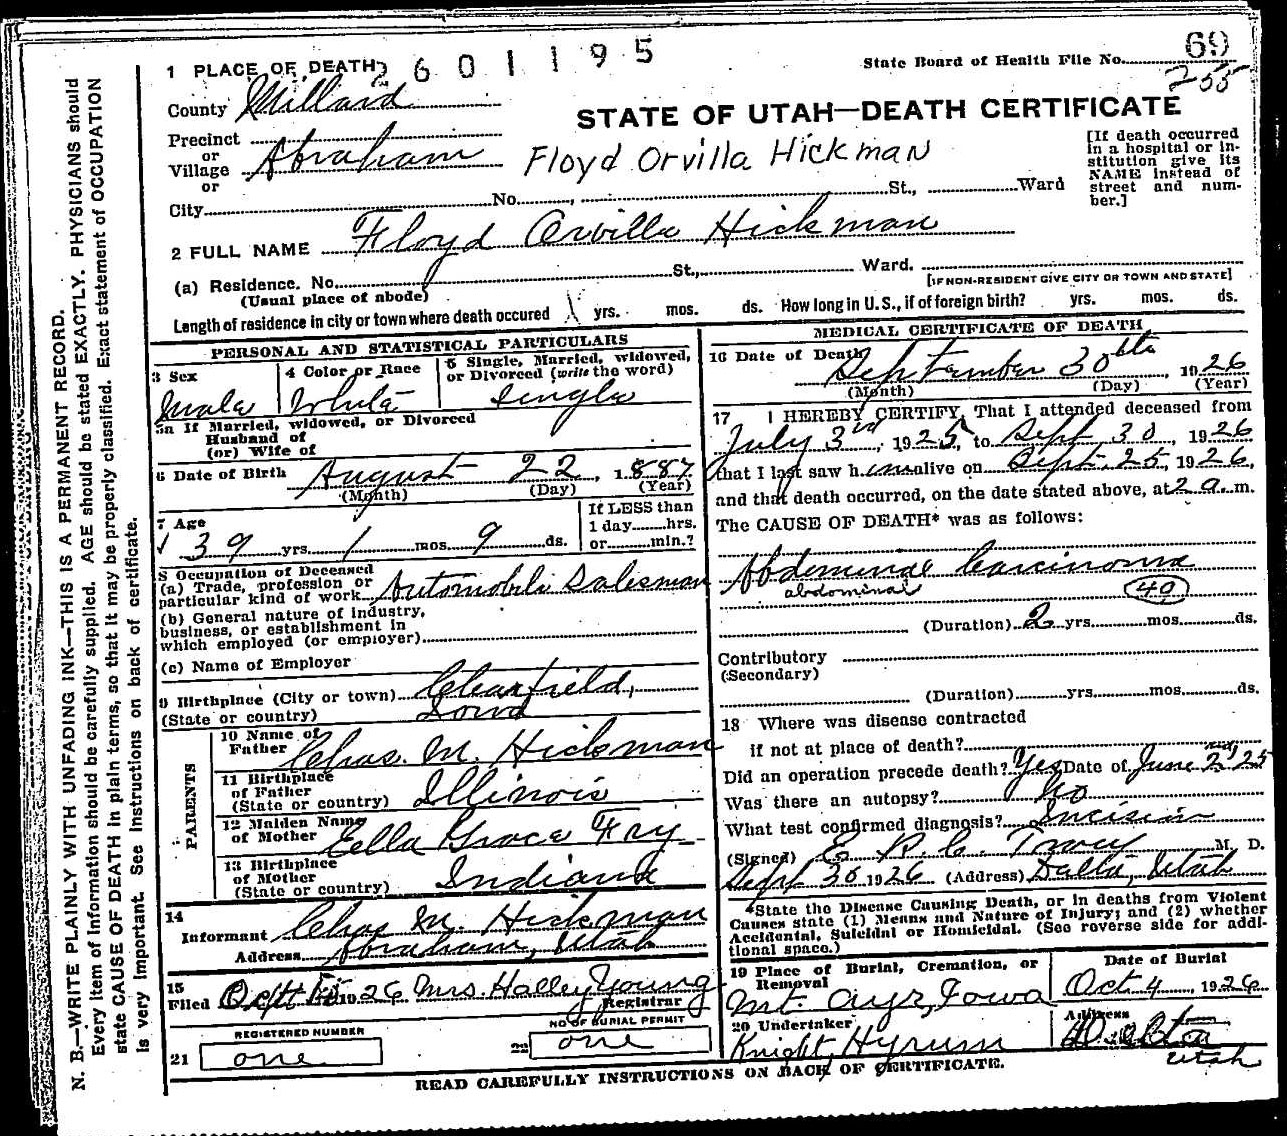 2601195
State Board of Health File No. 69
255
1 PLACE OF DEATH
County Millard
STATE OF UTAH—DEATH CERTIFICATE
Precinct
or
Village Abraham
or
Floyd Orvilla Hickman
[If death occurred
in a hospital or in-
stitution give its
NAME instead of
street and num-
ber.]
City No. , St., Ward
2 FULL NAME Floyd Orvilla Hickman
(a) Residence. No. St., Ward.
(Usual place of abode)
[IF NON-RESIDENT GIVE CITY OR TOWN AND STATE]
Length of residence in city or town where death occured yrs. mos. ds. How long in U.S., if of foreign birth? yrs. mos. ds.
PERSONAL AND STATISTICAL PARTICULARS
3 Sex
Male
4 Color or Race
White
5 Single, Married, widowed,
or Divorced (write the word)
Single
5a If Married, widowed, or Divorced
Husband of
(or) Wife of
6 Date of Birth August 22, 1887
(Month) (Day) (Year)
7 Age
39 yrs. 1 mos. 9 ds.
If LESS than
1 day hrs.
or min.?
8 Occupation of Deceased
(a) Trade, profession or
particular kind of work Automobile Salesman
(b) General nature of industry,
business, or establishment in
which employed (or employer)
(c) Name of Employer
9 Birthplace (City or town) Clearfield,
(State or country) Iowa
PARENTS
10 Name of
Father Chas. M. Hickman
11 Birthplace
of Father
(State or country) Illinois
12 Maiden Name
of Mother Ella Grace Fry
13 Birthplace
of Mother
(State or country) Indiana
14
Informant Chas M. Hickman
Address Abraham, Utah
15
Filed 1926 Mrs. Halley Young
Registrar
REGISTERED NUMBER
21 one
NO OF BURIAL PERMIT
22 one
MEDICAL CERTIFICATE OF DEATH
16 Date of Death September 30th, 1926
(Month) (Day) (Year)
17 I HEREBY CERTIFY, That I attended deceased from
July 3rd, 1925, to Sept 30, 1926
that I last saw him alive on Sept. 25, 1926,
and that death occurred, on the date stated above, at 2 a. m.
The CAUSE OF DEATH* was as follows:
Abdominal Carcinoma
abdominal 40
(Duration) 2 yrs. mos. ds.
Contributory
(Secondary)
(Duration) yrs. mos. ds.
18 Where was disease contracted
if not at place of death?
Did an operation precede death? Yes Date of June 2nd, 25
Was there an autopsy? No
What test confirmed diagnosis? Incision
(Signed) E. R. C. Tracy M. D.
Sept 30 1926 (Address) Delta, Utah
*State the Disease Causing Death, or in deaths from Violent
Causes state (1) Means and Nature of Injury; and (2) whether
Accidental, Suicidal or Homicidal. (See reverse side for addi-
tional space.)
19 Place of Burial, Cremation, or
Removal
Mt. Ayr, Iowa
Date of Burial
Oct 4 1926
20 Undertaker
Knight, Hyrum
Address
Delta
Utah
READ CAREFULLY INSTRUCTIONS ON BACK OF CERTIFICATE.
N. B.—WRITE PLAINLY WITH UNFADING INK—THIS IS A PERMANENT RECORD.
Every item of information should be carefully supplied. AGE should be stated EXACTLY. PHYSICIANS should
state CAUSE OF DEATH in plain terms, so that it may be properly classified. Exact statement of OCCUPATION
is very important. See instructions on back of certificate.